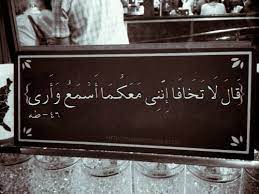 ﴿قَالَ لَا تَخَافَا إِنَّنِي مَعَكُمَا أَسْمَعُ وَأَرَى﴾
٤٦ - طه